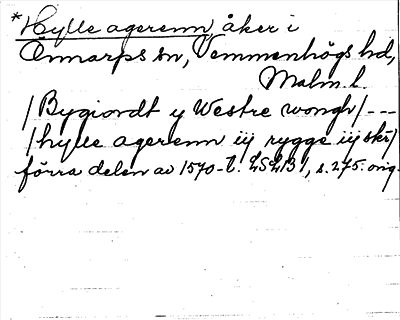 *Hylle agerenn, åker i
Önnarps sn, Vemmenhögs hd,
Malm. l.
/Bygiordt y Westre wongh/ ---
/hylle agerenn iij rygge iij skr/
förra delen av 1570-t. LSLB1, s. 275. orig.